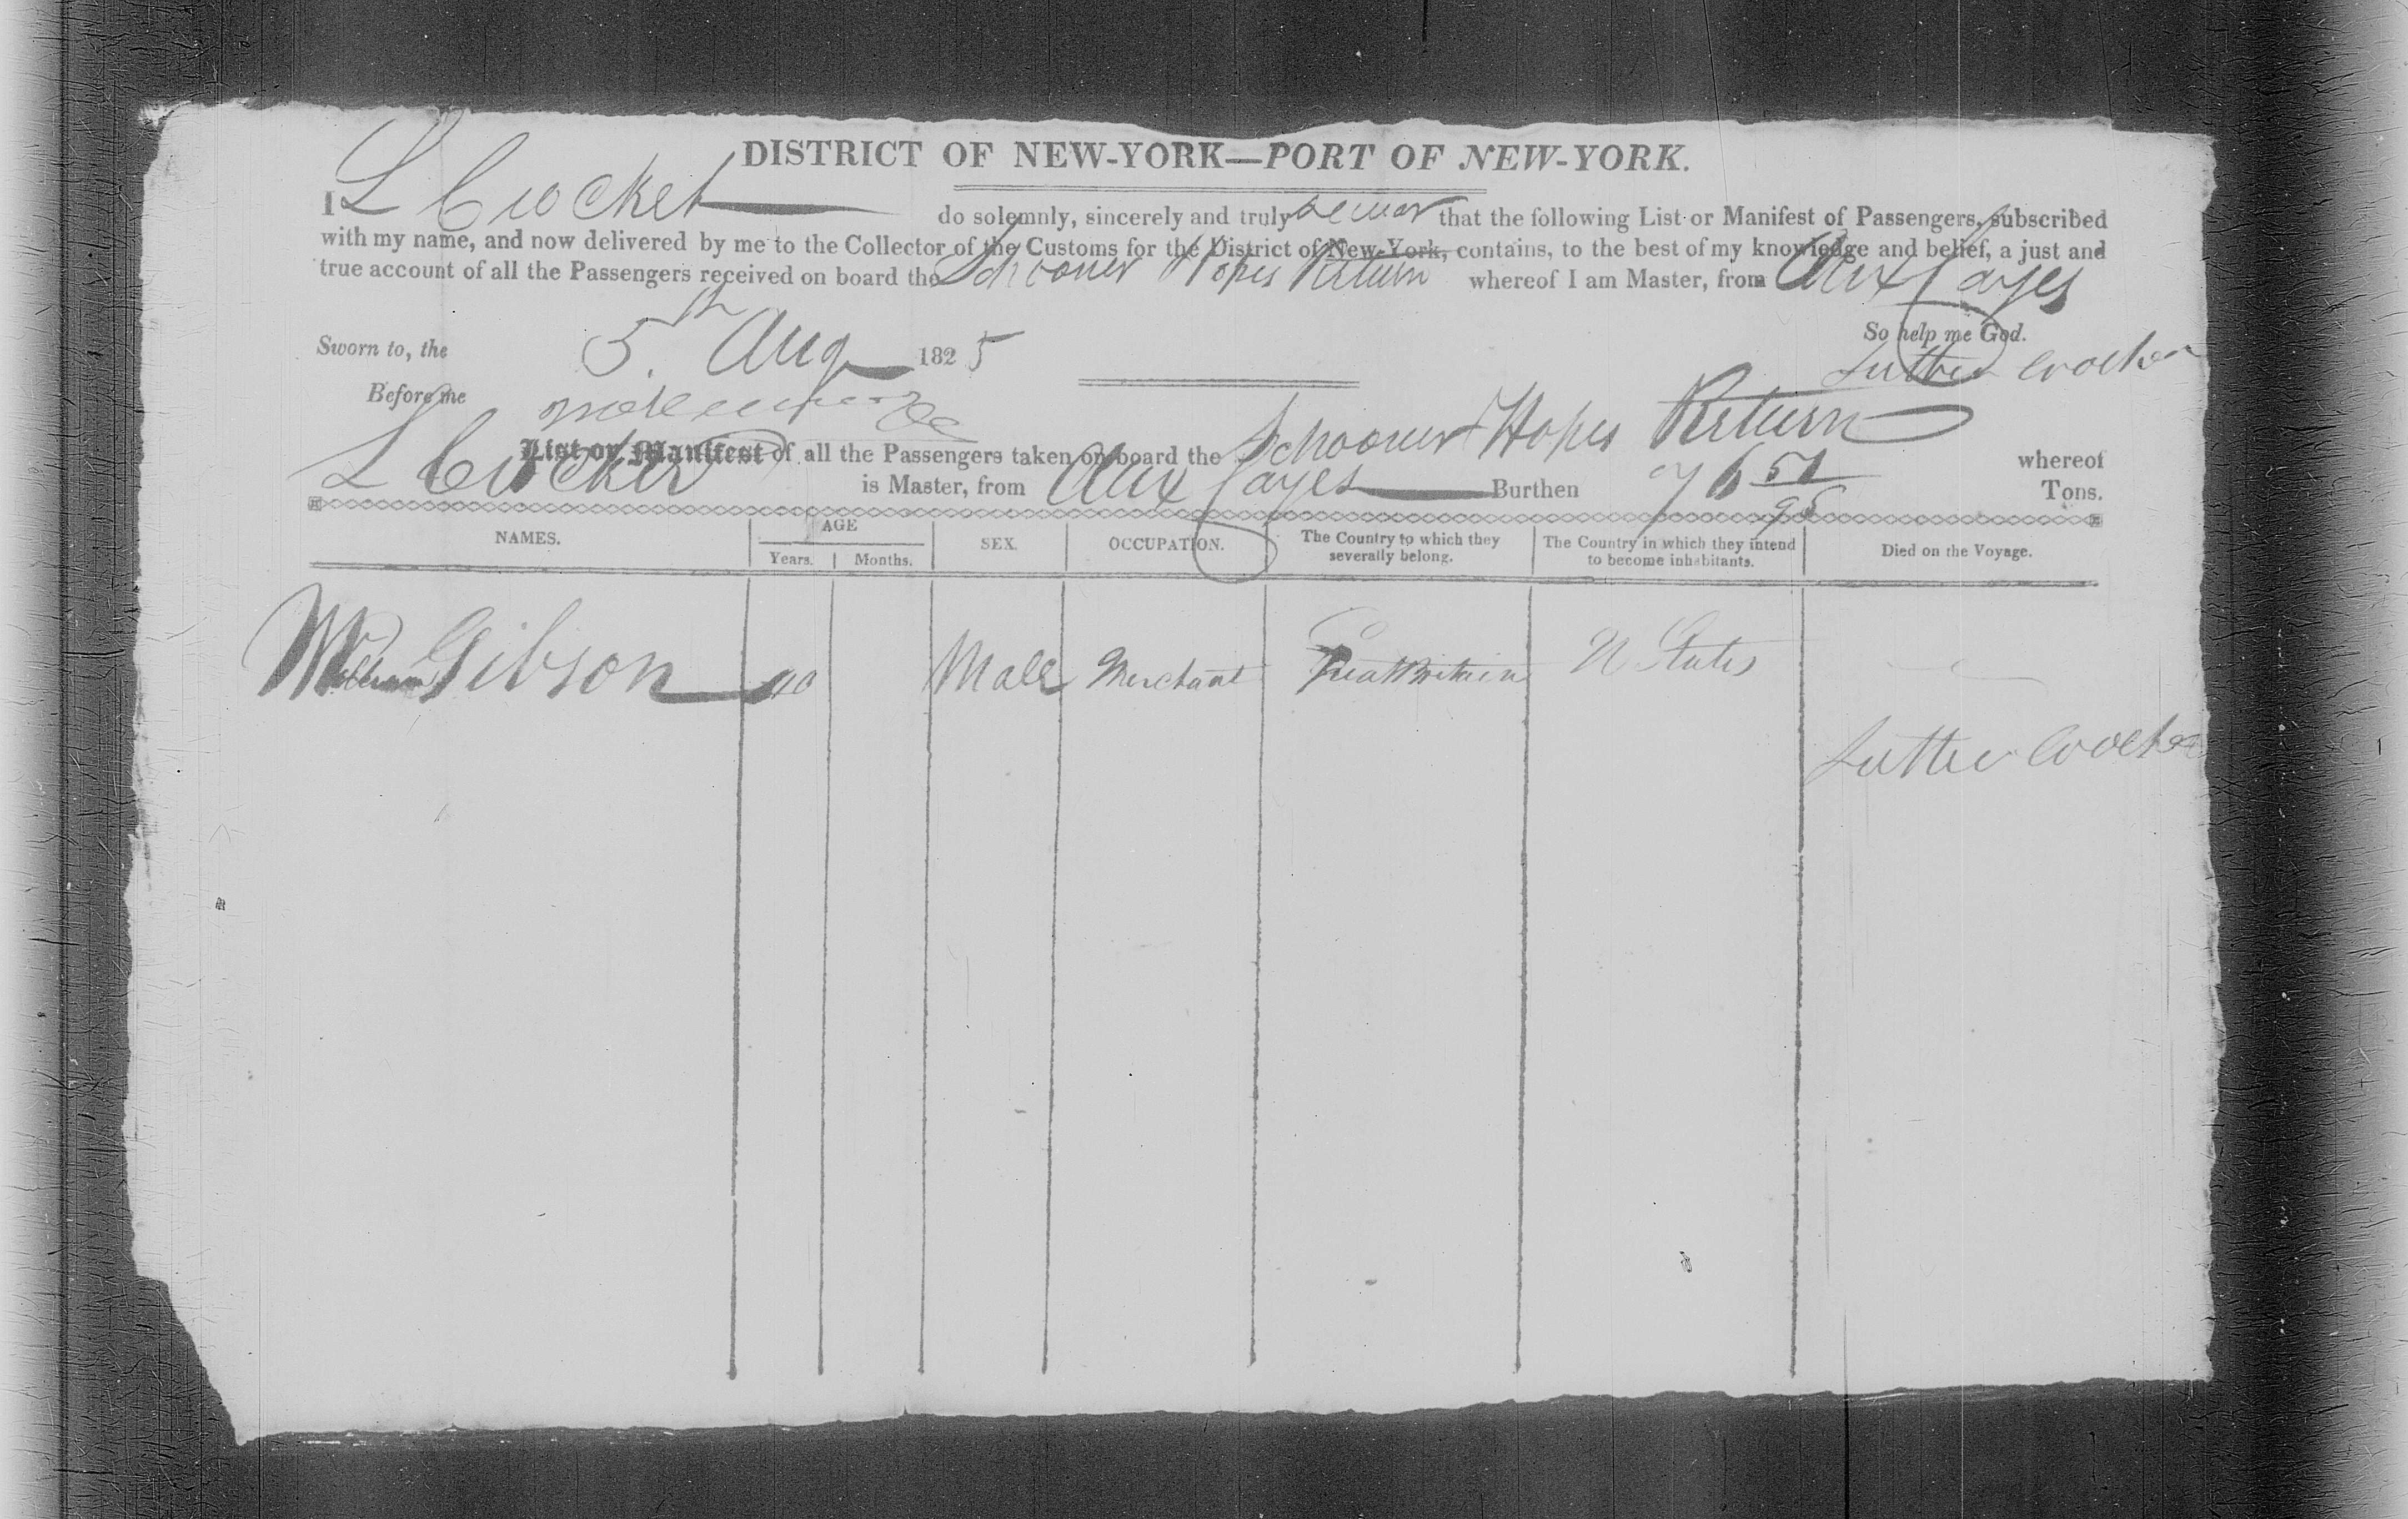 DISTRICT OF NEW-YORK—PORT OF NEW-YORK.
I L Crocker do solemnly, sincerely and truly swear that the following List or Manifest of Passengers, subscribed
with my name, and now delivered by me to the Collector of the Customs for the District of New-York, contains, to the best of my knowledge and belief, a just and
true account of all the Passengers received on board the Schooner Hopes Return whereof I am Master, from Aux Cayes
So help me God.
Sworn to, the 5th Aug 1825
Luther Crocker
Before me
List or Manifest of all the Passengers taken on board the Schooner Hopes Return whereof
L Crocker is Master, from Aux Cayes Burthen 76 51/95 Tons.
NAMES. AGE Years. Months. SEX. OCCUPATION. The Country to which they severally belong. The Country in which they intend to become inhabitants. Died on the Voyage.
William Gibson 40 Male Merchant Great Britain U States
Luther Crocker